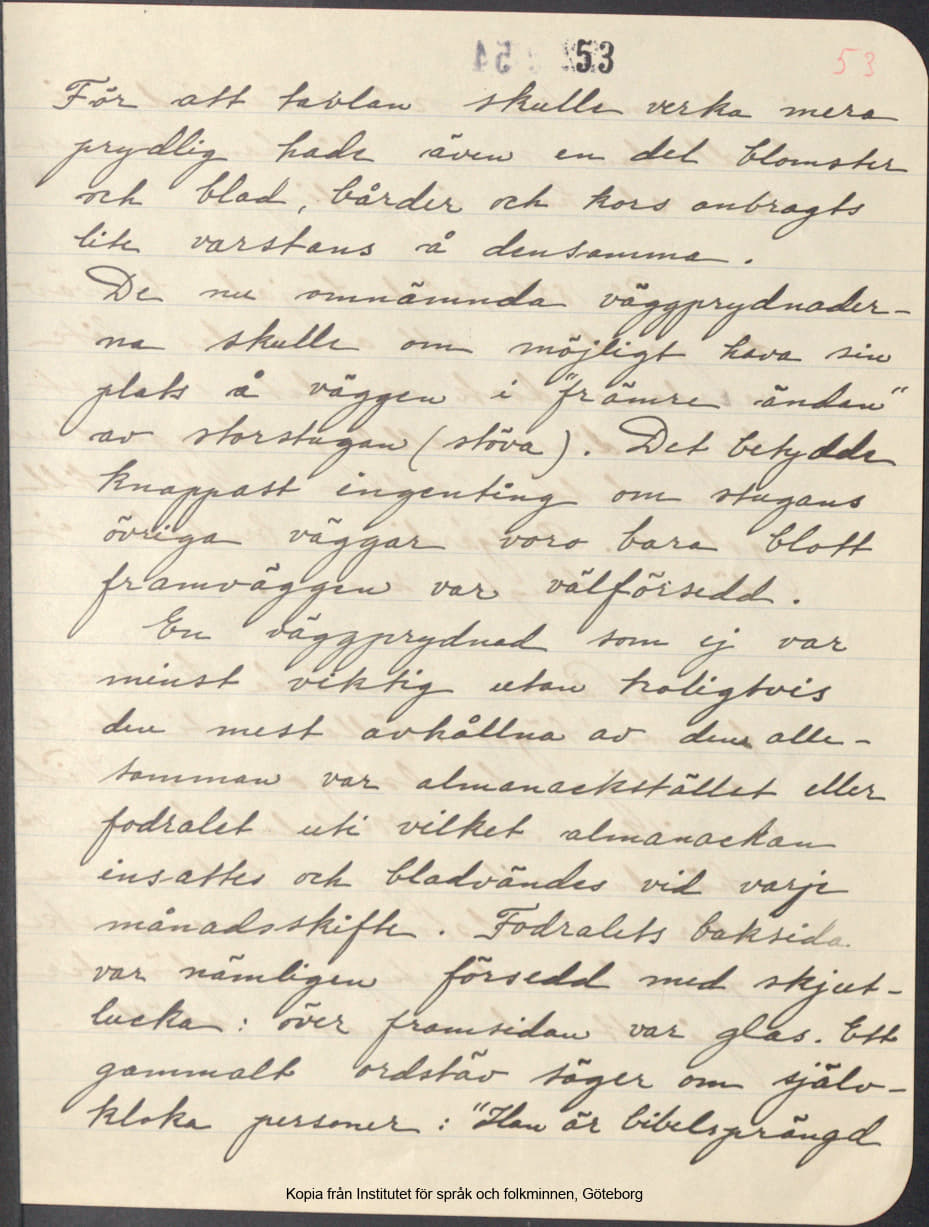 53
53
För att tavlan skulle verka mera
prydlig hade även en del blomster
och blad, bårder och kors anbragts
lite varstans å densamma.
De nu omnämnda väggprydnader-
na skulle om möjligt hava sin
plats å väggen i "främre ändan"
av storstugan (stöva). Det betydde
knappast ingenting om stugans
övriga väggar voro bara blott
framväggen var välförsedd.
En väggprydnad som ej var
minst viktig utan troligtvis
den mest avhållna av dem alle-
samman var almanackstället eller
fodralet uti vilket almanackan
insattes och bladvändes vid varje
månadsskifte. Fodralets baksida
var nämligen försedd med skjut-
lucka: över framsidan var glas. Ett
gammalt ordstäv säger om själv-
kloka personer: "Han är bibelsprängd
Kopia från Institutet för språk och folkminnen, Göteborg